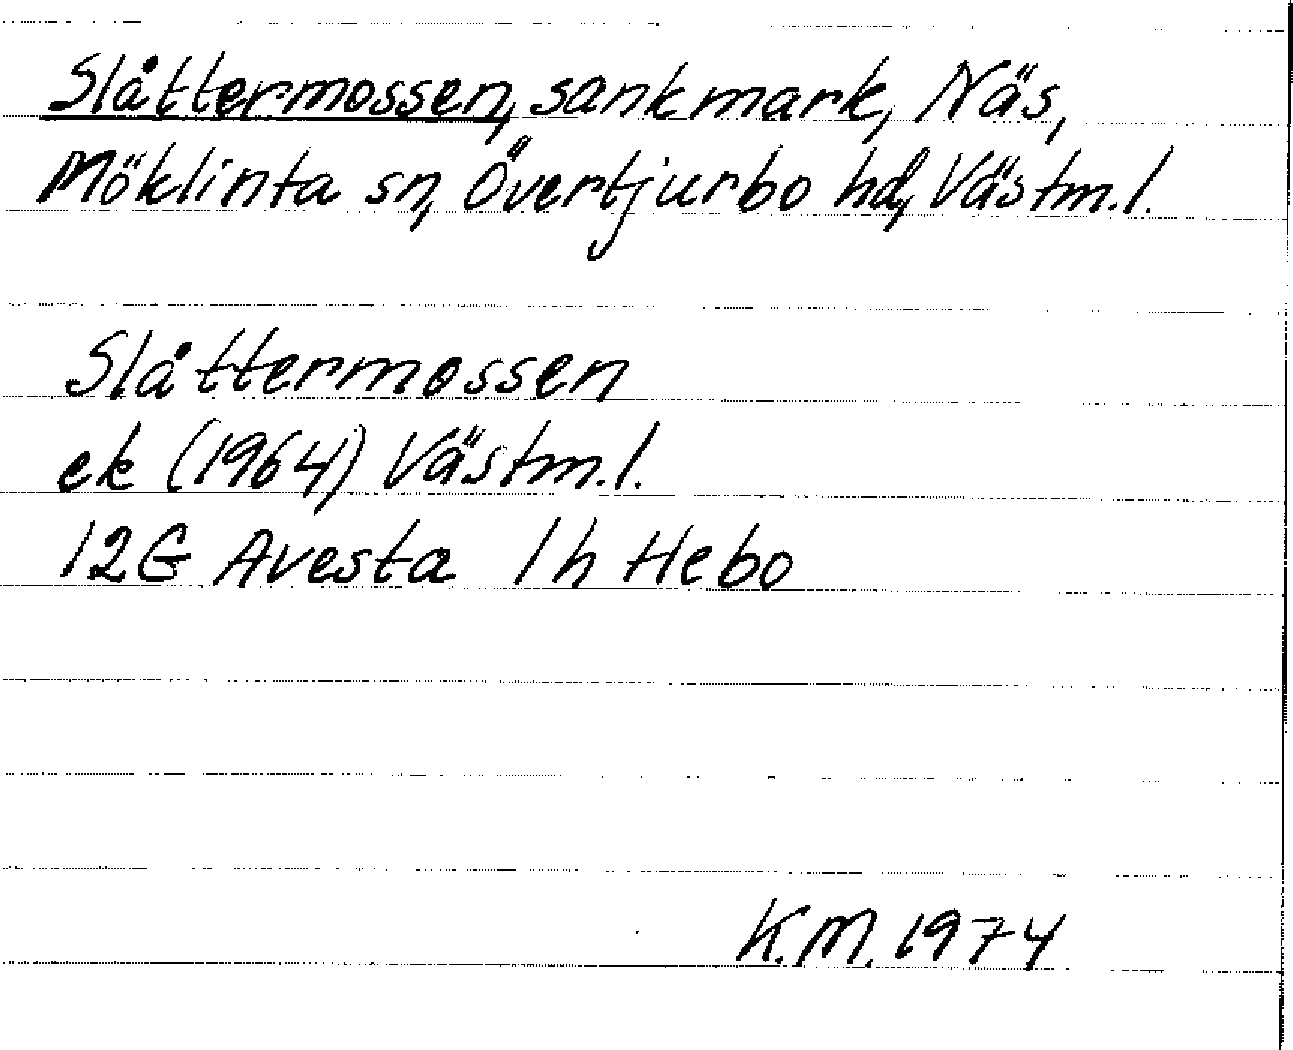 Slåttermossen, sankmark, Näs,
Möklinta sn, Övertjurbo hd, Västm.l.
Slåttermossen
ek (1964) Västm.l.
12G Avesta 1h Hebo
K.M. 1974